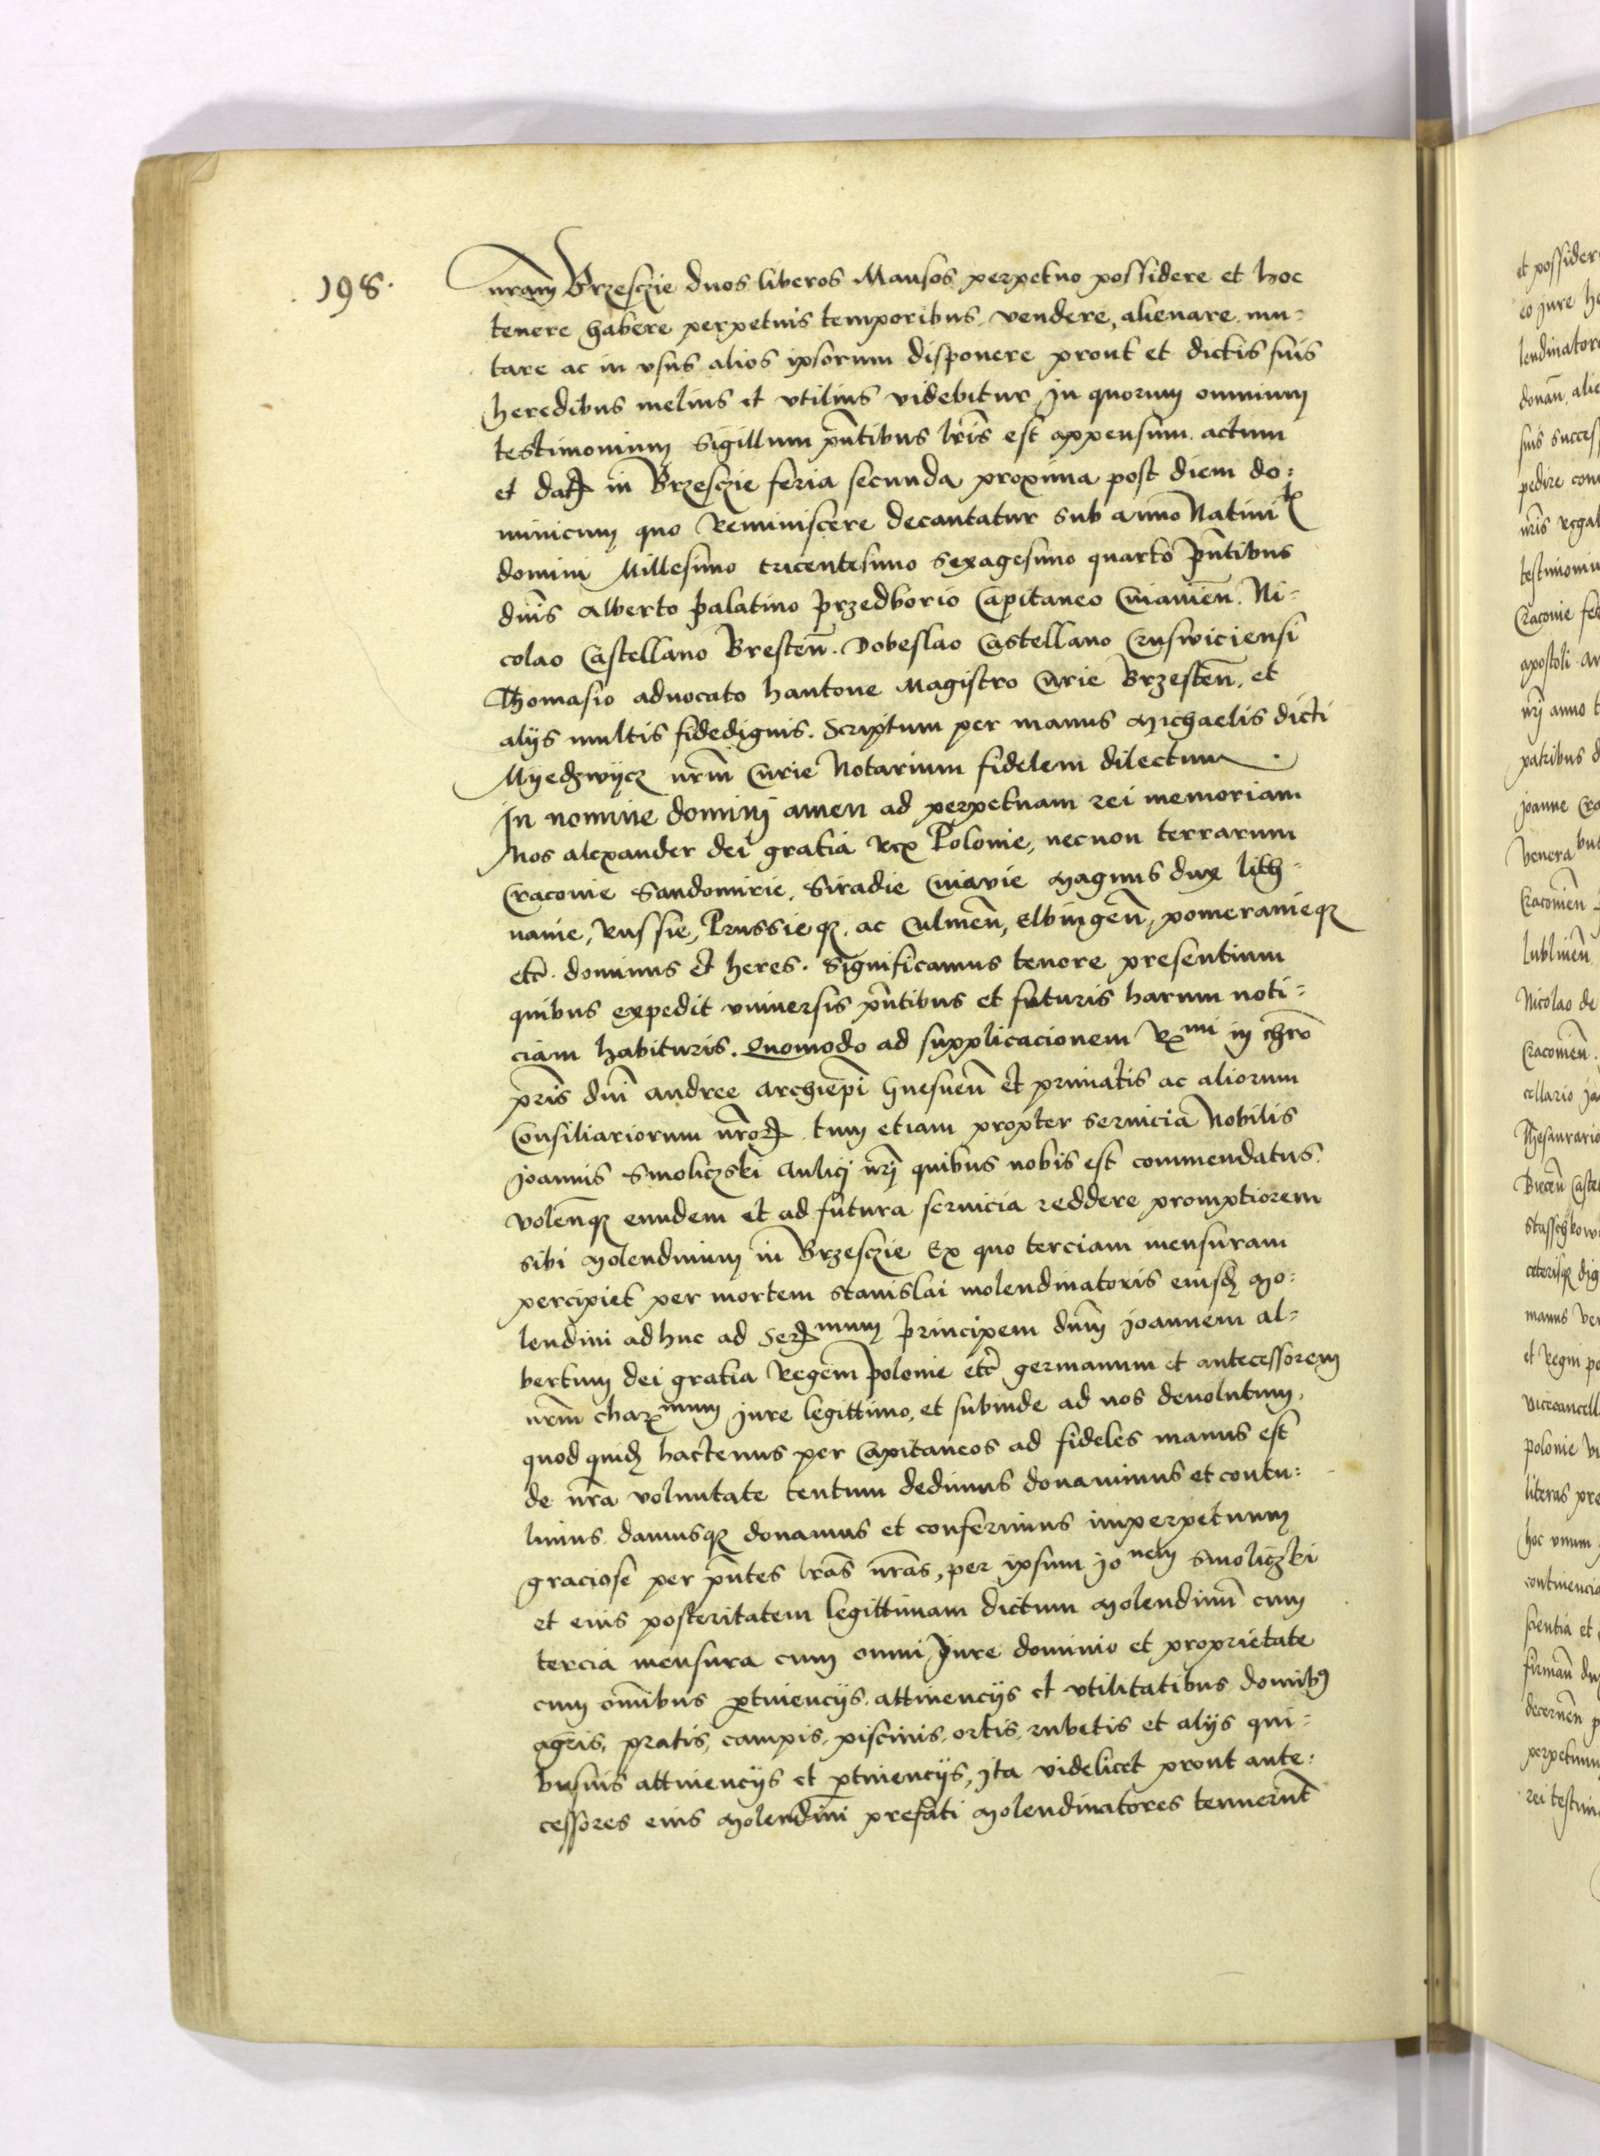 198.
nram̅ Brzesczie duos liberos Mansos perpetuo possidere et hoc
tenere habere perpetuis temporibus vendere, alienare mu-
tare ac in vsus alios ipsorum disponere prout et dictis suis
heredibus melius et vtilius videbitur In quorum omnium
testimonium Sigillum pn̅tibus lr̅is est appensum. actum
et datꝝ in Brzesczie feria secunda proxima post diem do-
minicum quo Reminiscere decantatur sub anno Natiuitꝭ
domini Millesimo tricentesimo sexagesimo quarto pn̅tibus
dn̅is Alberto palatino przedborio Capitaneo Cuiauien̅. Ni-
colao Castellano Bresten̅. Dobeslao Castellano Cruswiciensi
Thomasio aduocato hantone Magistro Curie Brzesten̅. et
alijs multis fidedignis. Scriptum per manus Michaelis dicti
Myedzwijcz nrm̅ Curie Notarium fidelem dilectum.
In nomine dominj amen ad perpetuam rei memoriam
Nos alexander dei gratia Rex Polonie, necnon terrarum
Cracouie Sandomirie, Siradie Cuiavie Magnus dux lith-
uanie, Russie, Prussieqꝫ, ac Culmen̅, Elbingen̅, pomeranieqꝫ
etc̅. dominus et heres. Significamus tenore presentium
quibus expedit vniuersis pn̅tibus et futuris harum noti-
ciam habituris. Quomodo ad supplicacionem Rx^mi in chro̅
pr̅is dn̅i andree archiepi̅ Gnesnen̅ et primatis ac aliorum
Consiliariorum nr̅oꝝ tum etiam propter seruicia Nobilis
Joannis Smoliczski Aulicj nr̅j quibus nobis est commendatus
volen̅qꝫ eundem et ad futura seruicia reddere promptiorem
sibi Molendinum in Brzesczie Ex quo terciam mensuram
percipiet per mortem stanislai molendinatoris eiusdꝫ Mo-
lendini adhuc ad Serꝝ^mum principem dn̅m Joannem al-
bertum dei gratia Regem polonie etc̅ germanum et antecessorem
nrm̅ charx^mum Jure legittimo, et subinde ad nos deuolutum,
quod quidꝫ hactenus per Capitaneos ad fideles manus est
de nr̅a voluntate tentum dedimus donauimus et contu-
limus damusqꝫ donamus et conferimus imperpetuum
graciose per pn̅tes lr̅as nr̅as, per ipsum Jo^nem Smoliczki
et eius posteritatem legittimam dictum Molendinu̅ cum
tercia mensura cum omni Jure dominio et proprietate
cum om̅ibus ꝑtinencijs, attinencijs et vtilitatibus domibꝰ
agris, pratis, campis, piscinis, ortis, rubetis et alijs qui-
busuis attinencijs et ꝑtinencijs, Ita videlicet prout ante-
cessores eius Molendini prefati Molendinatores tenuerunt